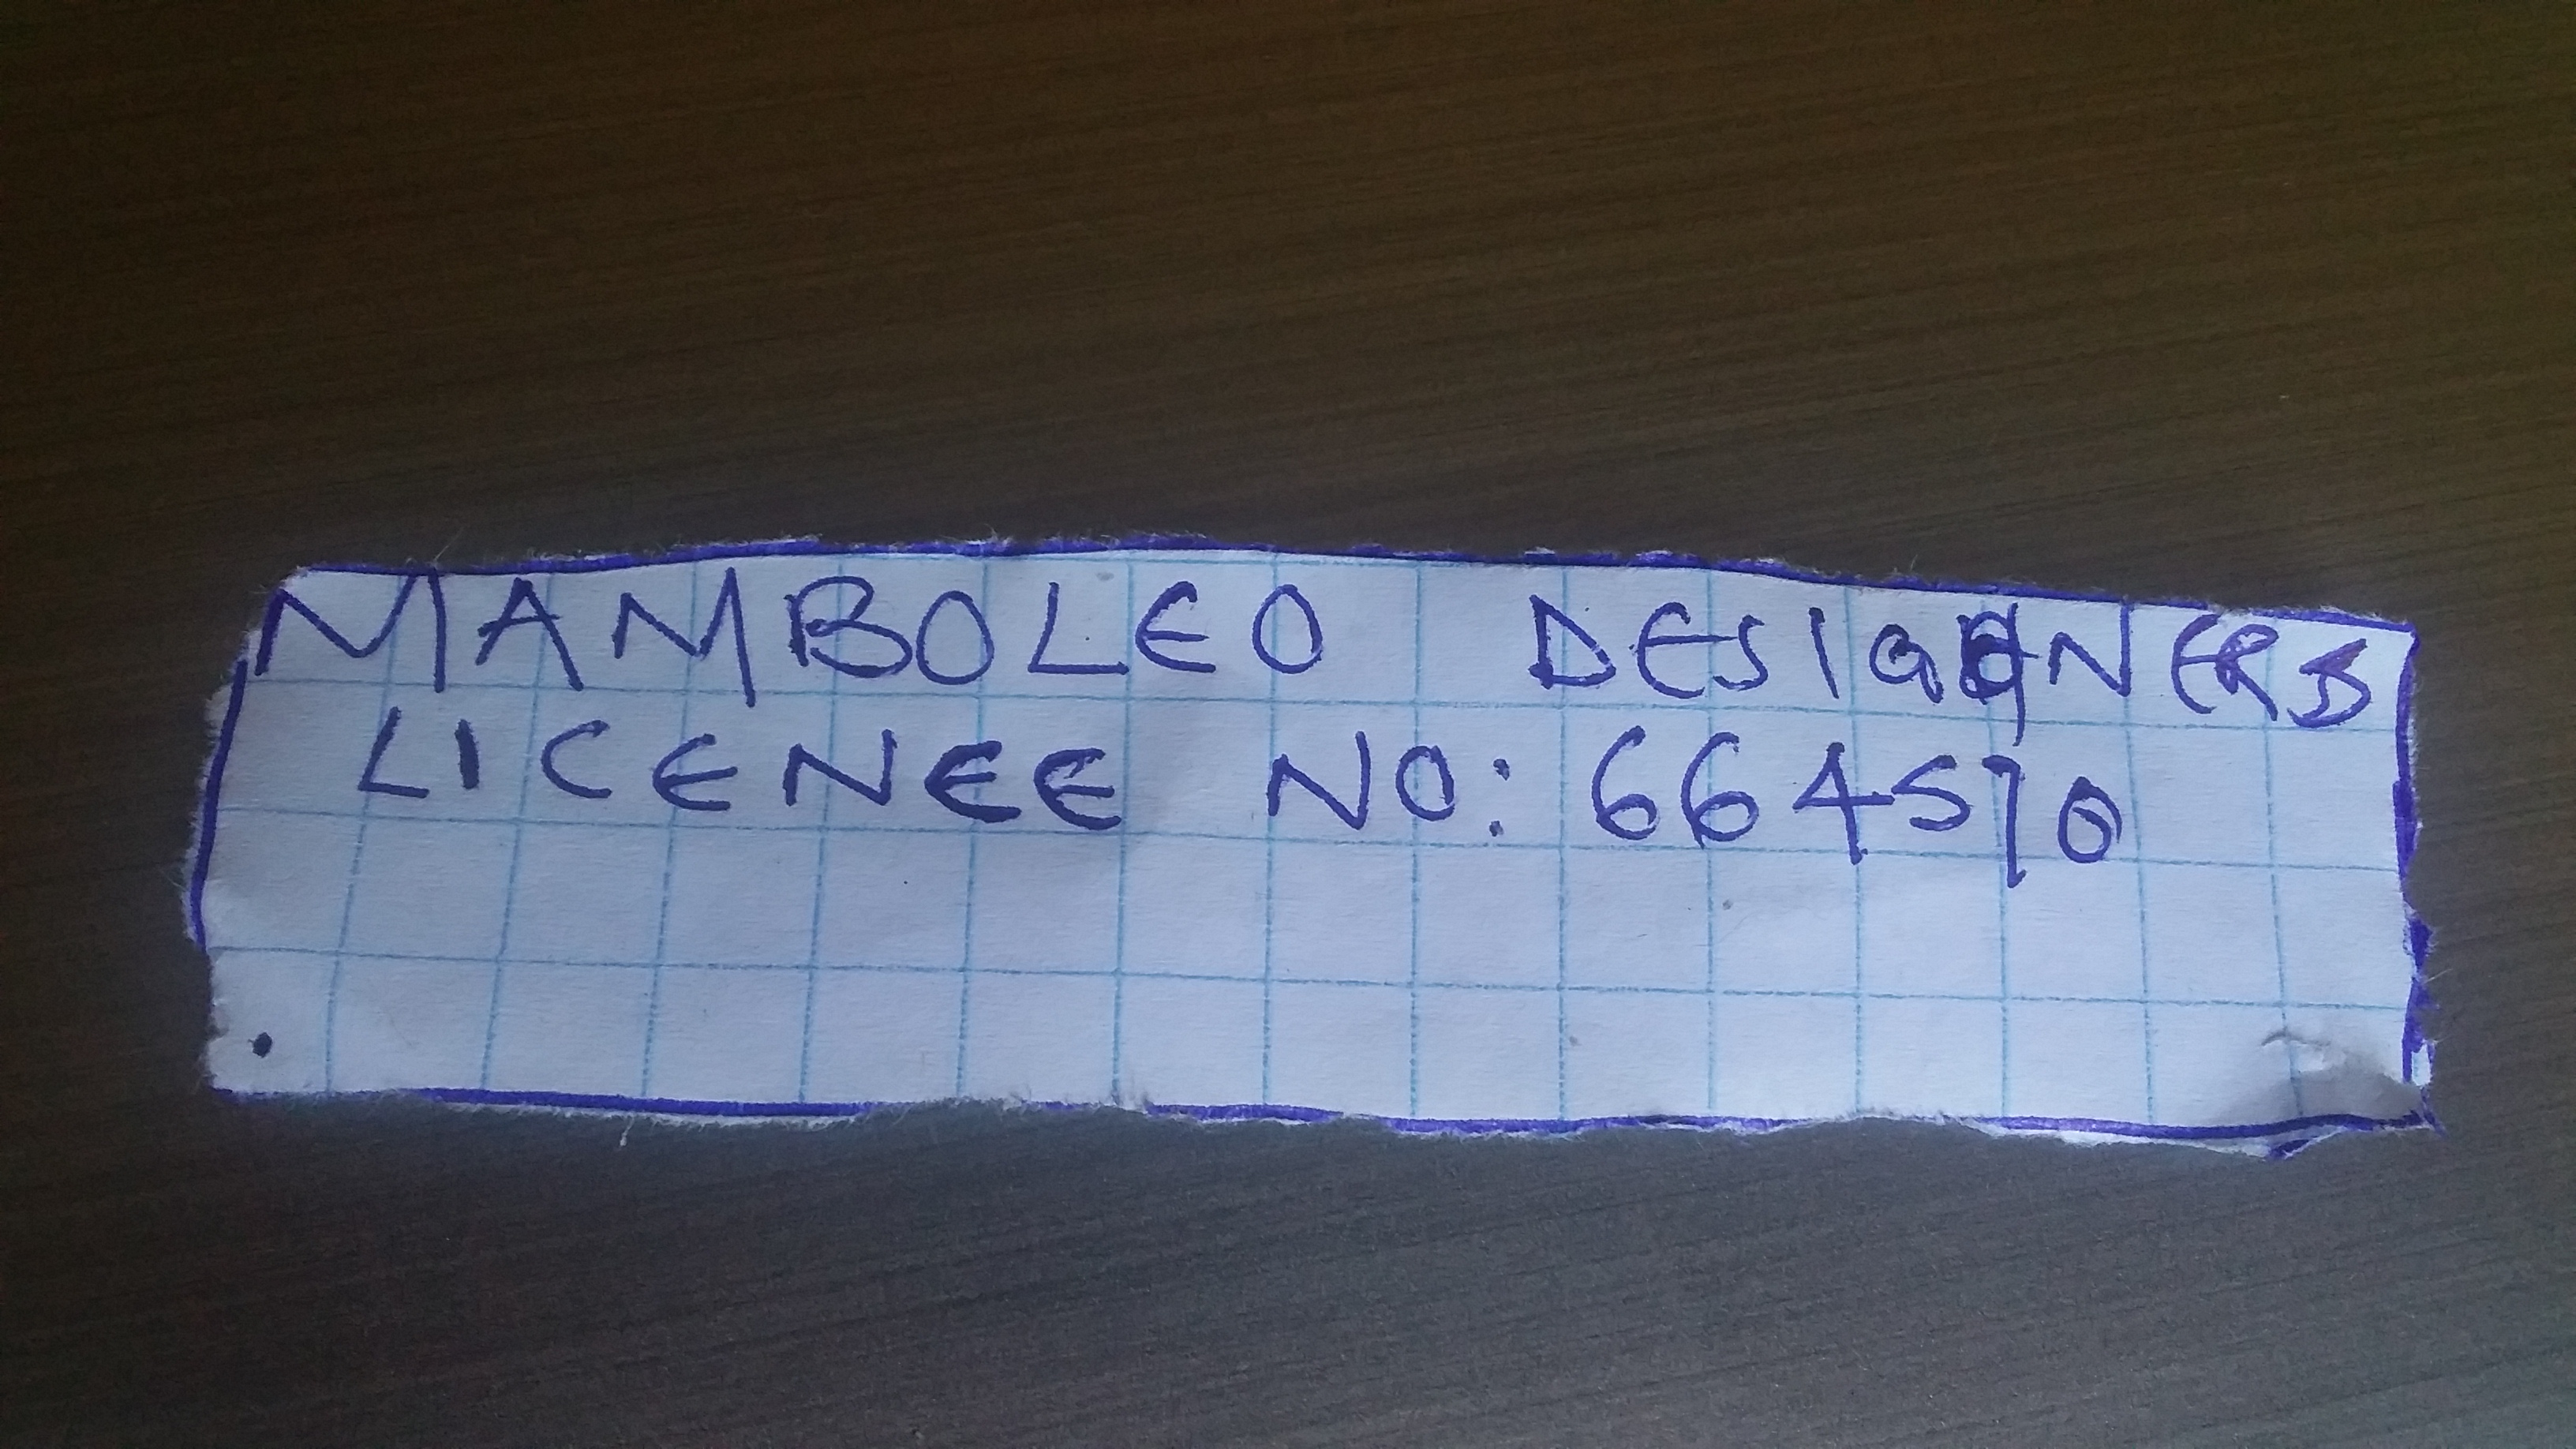 MAMBOLEO DESIGNERS
LICENEE NO: 664570